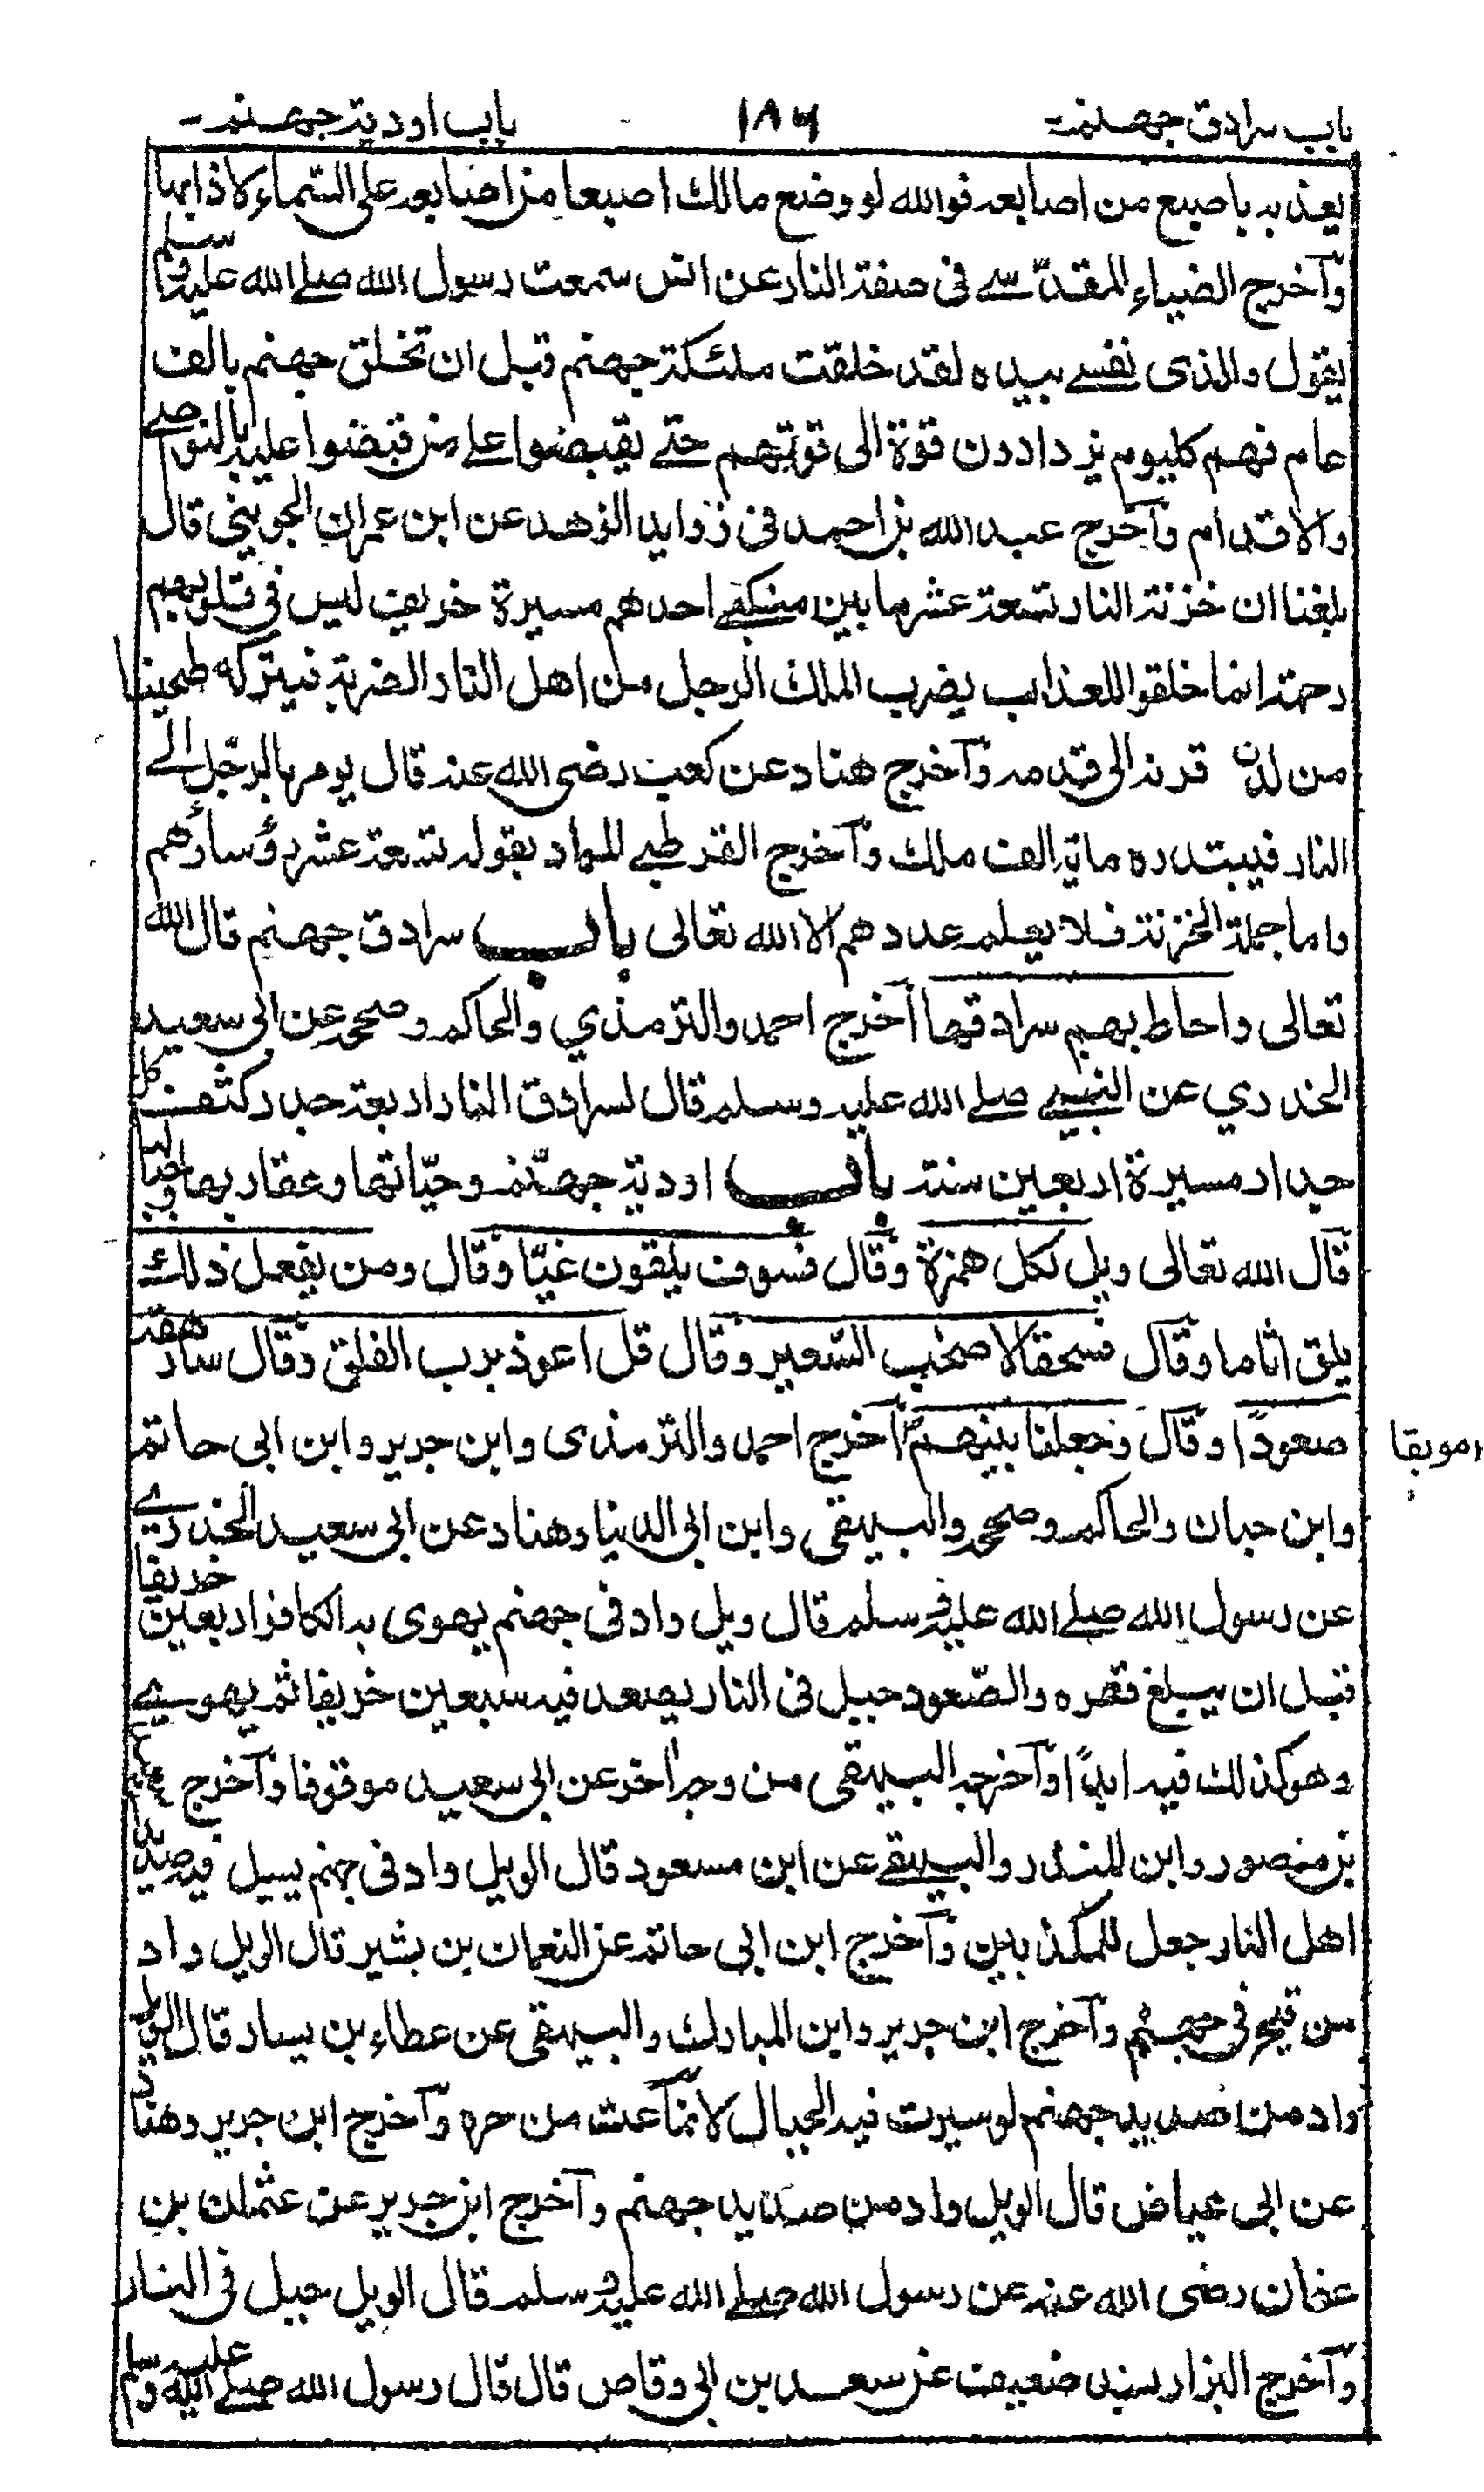 باب سرادق جهنم ١٨٦ باب اودية جهنم
يعذبه باصبع من اصابعه فوالله لو وضع مالك اصبعا من اصابعه على السماء لاذابها
وآخرج الضياء المقدسي في صفة النار عن انس سمعت رسول الله صلے الله عليه وسلم
يقول والذى نفسے بيده لقد خلقت ملئكة جهنم قبل ان تخلق جهنم بالف
عام فهم كليوم يزدادون قوة الى قوتهم حتے يقبضوا علے من قبضوا عليه بالنواصے
والاقدام وآخرج عبد الله بن احمد فى زوايد الزهد عن ابن عمران الجوينى قال
بلغنا ان خزنة النار تسعة عشر ما بين منكبے احدهم مسيرة خريف ليس فى قلوبهم
رحمة انما خلقوا للعذاب يضرب الملك الرجل من اهل النار الضربة فيتركه طحينا
من لدن قرنه الى قدمه وآخرج هناد عن كعب رضى الله عنه قال يومر بالرجل الے
النار فيبتدره ماية الف ملك وآخرج القرطبے المراد بقوله تسعة عشر رؤسائهم
واما جملة الخزنة فلا يعلم عددهم الا الله تعالى باب سرادق جهنم قال الله
تعالى واحاط بهم سرادقها آخرج احمد والترمذي والحاكم وصححه عن ابى سعيد
الخدري عن النبے صلے الله عليه وسلم قال لسرادق النار اربعة جدر كثف كل
جدار مسيرة اربعين سنة باب اودية جهنم وحياتها وعقاربها وجبالها
قال الله تعالى ويل لكل همزة وقال فسوف يلقون غيّا وقال ومن يفعل ذلك
يلق اثاما وقال فسحقا لاصحٰب السّعير وقال قل اعوذ برب الفلق وقال سارهقه
صعودًا وقال وجعلنا بينهم موبقا آخرج احمد والترمذى وابن جرير وابن ابى حاتم
وابن حبان والحاكم وصححه والبيهقى وابن ابى الدنيا وهناد عن ابى سعيد الخدرے
عن رسول الله صلے الله عليه وسلم قال ويل واد فى جهنم يهوى به الكافر اربعين خريفا
قبل ان يبلغ قعره والصّعود جبل فى النار يصعد فيه سبعين خريفا ثم يهوے
وهو كذلك فيه ابدًا وآخرجه البيهقى من وجه اخر عن ابى سعيد موقوفا وآخرج
بن منصور وابن المنذر والبيهقے عن ابن مسعود قال الويل واد فى جهنم يسيل فيه صديد
اهل النار جعل للمكذبين وآخرج ابن ابى حاتم عن النعمان بن بشير قال الويل واد
من قيح فى جهنم وآخرج ابن جرير وابن المبارك والبيهقى عن عطاء بن يسار قال الويل
واد من صديد جهنم لو سيرت فيه الجبال لانماعت من حره وآخرج ابن جرير وهناد
عن ابى عياض قال الويل واد من صديد جهنم وآخرج ابن جرير عن عثمان بن
عفان رضى الله عنه عن رسول الله صلے الله عليه وسلم قال الويل جبل فى النار
وآخرج البزار بسند ضعيف عن سعد بن ابى وقاص قال قال رسول الله صلے الله عليه وسلم